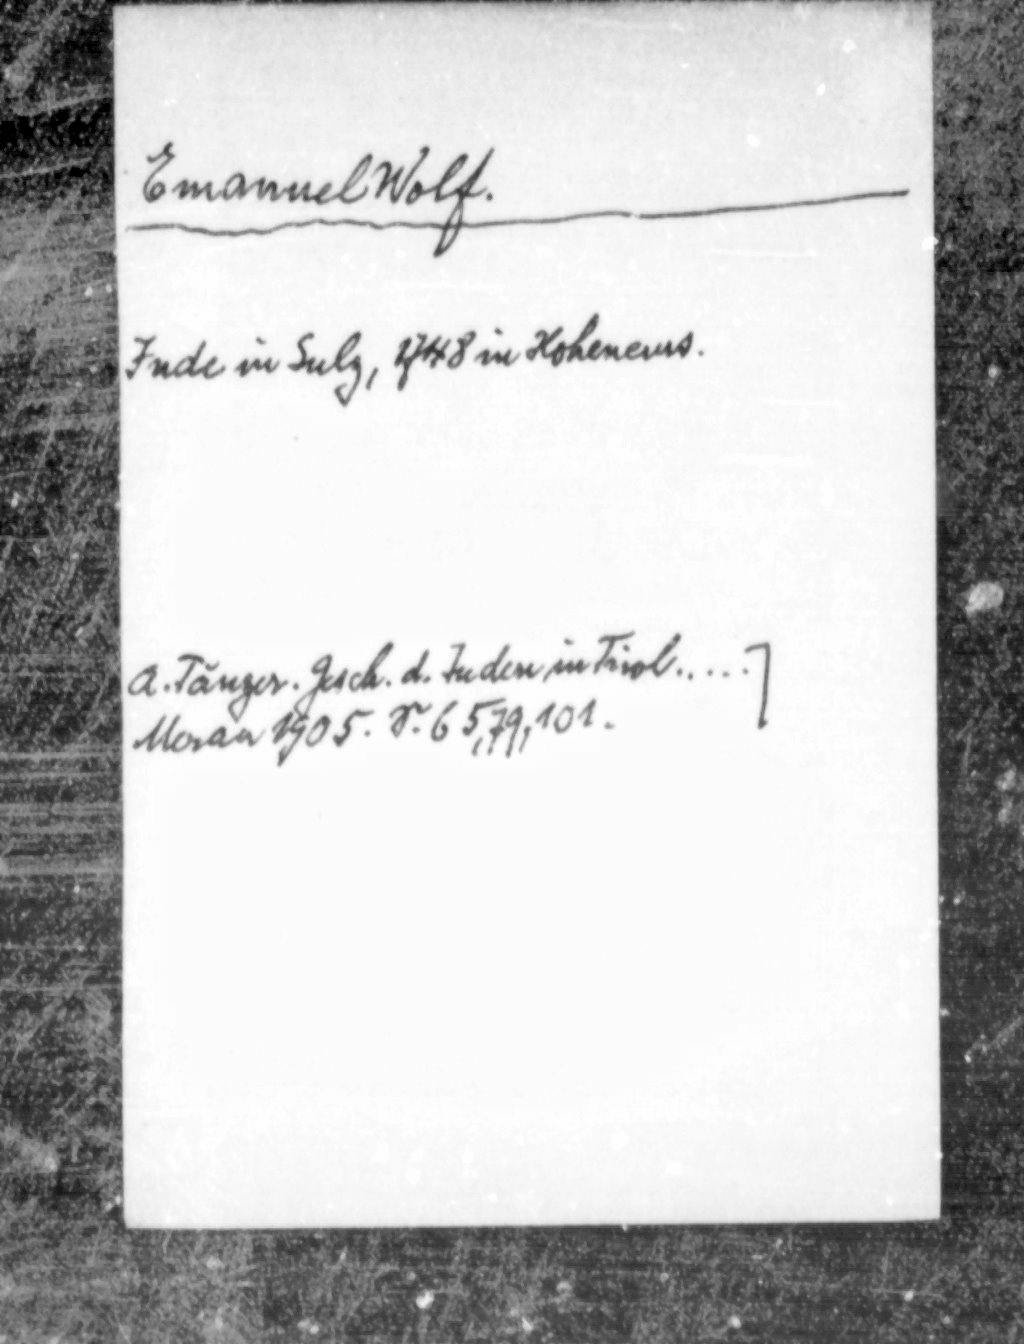 Emanuel Wolf.
Jude in Sulz, 1748 in Hohenems.
A. Tänzer. Gesch. d. Juden in Tirol.....]
Meran 1905. S. 65,79,101.